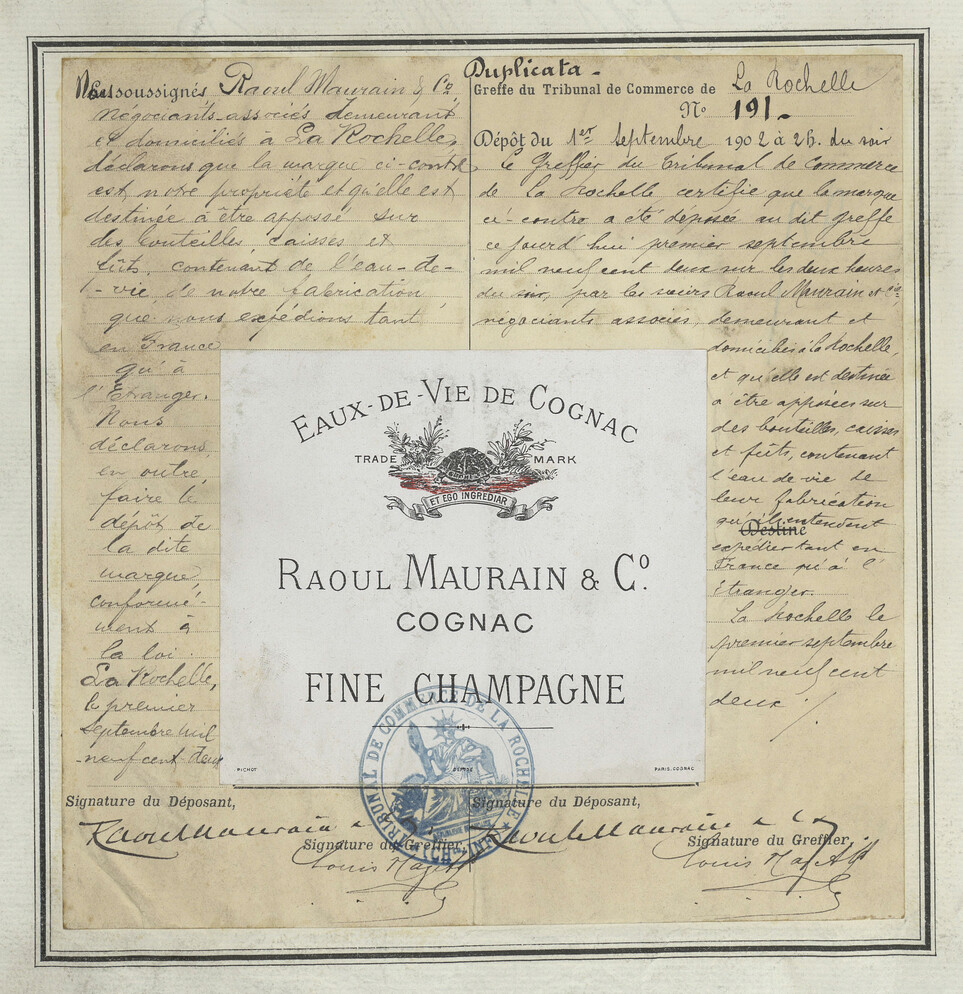 Nous soussignés Raoul Maurain & Cie
négociants-associés demeurant
et domiciliés à La Rochelle,
déclarons que la marque ci-contre
est notre propriété et qu'elle est
destinée à être apposé sur
des bouteilles, caisses et
fûts, contenant de l'eau-de-
-vie de notre fabrication
que nous expédions tant
en France
qu'à
l'Étranger.
Nous
déclarons,
en outre,
faire le
dépôt de
la dite
marque,
conformé-
ment à
la loi.
La Rochelle,
le premier
Septembre mil
neuf cent deux
Signature du Déposant,
Raoul Maurain & Co
Signature du Greffier,
Louis
Duplicata -
Greffe du Tribunal de Commerce de La Rochelle
No 191.
Dépôt du 1er Septembre 1902 à 2h. du soir
Le Greffier du Tribunal de Commerce
de La Rochelle certifie que la marque
ci-contre a été déposée au dit greffe
ce jourd'hui premier septembre
mil neuf cent deux sur les deux heures
du soir, par les sieurs Raoul Maurain et Cie
négociants associés, demeurant et
domiciliés à la Rochelle,
et qu'elle est destinée
à être apposées sur
des bouteilles, caisses
et fûts, contenant
l'eau de vie de
leur fabrication
qu'ils entendent
Destiné
expédier tant en
France qu'à l'
étranger.
La Rochelle le
premier septembre
mil neuf cent
deux ./.
Signature du Déposant,
Raoul Maurain & Co
Signature du Greffier,
Louis
EAUX-DE-VIE DE COGNAC
TRADE MARK
ET EGO INGREDIAR
RAOUL MAURAIN & Co.
COGNAC
FINE CHAMPAGNE
PICHOT DÉPOSÉ PARIS.COGNAC
TRIBUNAL DE COMMERCE DE LA ROCHELLE